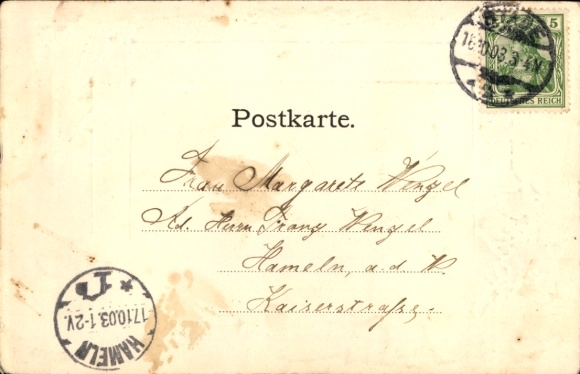 5
16.10.03.3-4N.
DEUTSCHES REICH
Postkarte.
Frau Margarete Wenzel
Ad. Herrn Franz Wenzel
Hameln, a. d. W.
Kaiserstraße.
17.10.03.1-2V.
HAMELN